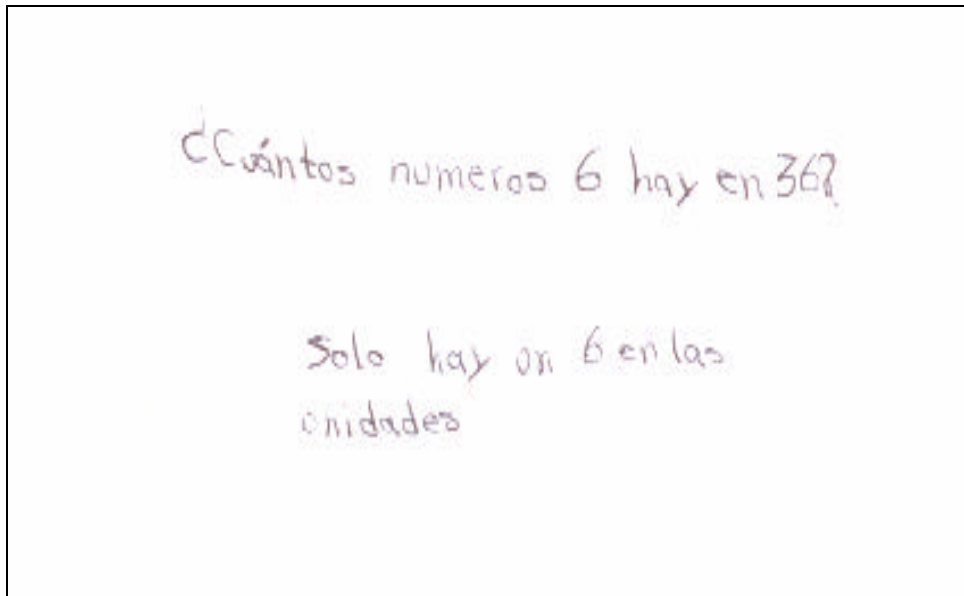 ¿Cuántos numeros 6 hay en 36?
Solo hay un 6 en las
unidades